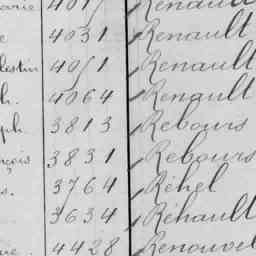 arie 401 Renault
e 4031 Renault
lestin 4051 Renault
h. 4064 Renault
ph. 3813 Rebours
çois 3831 Rebours
s. 3764 Réhel
3634 Réhault
ue. 4428 Renouvel